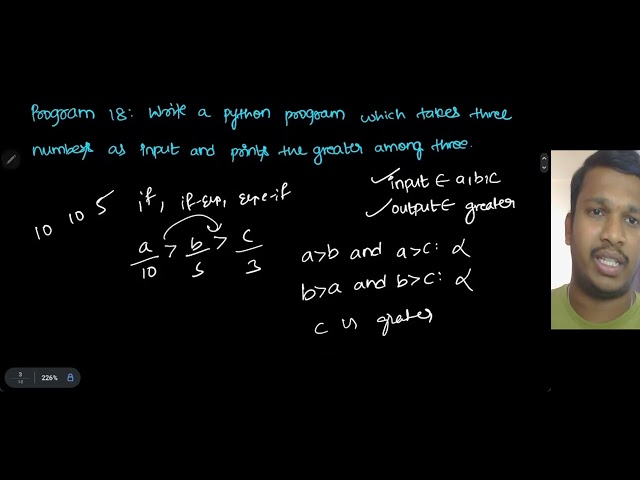 Program 18: Write a python program which takes three
numbers as input and prints the greater among three.
10 10 5 if, if-else, else-if
a > b > c
10 5 3
input ← a,b,c
output ← greater
a>b and a>c:
b>a and b>c:
c is greater
3
226%